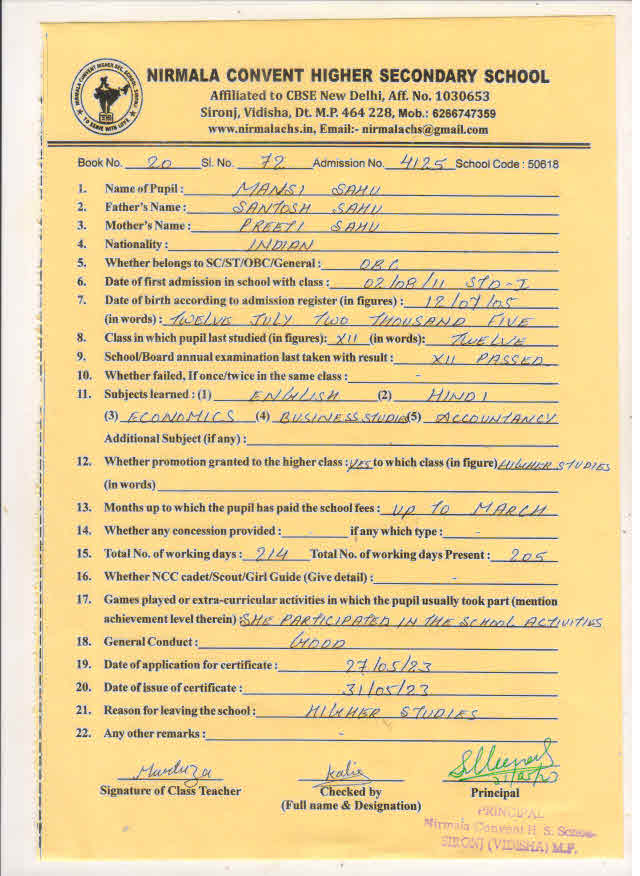 NIRMALA CONVENT HIGHER SECONDARY SCHOOL
Affiliated to CBSE New Delhi, Aff. No. 1030653
Sironj, Vidisha, Dt. M.P. 464 228, Mob.: 6266747359
www.nirmalachs.in, Email:- nirmalachs@gmail.com
Book No. 20 Sl. No. 72 Admission No. 4125 School Code : 50618
1. Name of Pupil : MANSI SAHU
2. Father's Name : SANTOSH SAHU
3. Mother's Name : PREETI SAHU
4. Nationality : INDIAN
5. Whether belongs to SC/ST/OBC/General : OBC
6. Date of first admission in school with class : 02/08/11 STD-I
7. Date of birth according to admission register (in figures) : 12/07/05
(in words) : TWELVE JULY TWO THOUSAND FIVE
8. Class in which pupil last studied (in figures): XII (in words): TWELVE
9. School/Board annual examination last taken with result : XII PASSED
10. Whether failed, if once/twice in the same class : -
11. Subjects learned : (1) ENGLISH (2) HINDI
(3) ECONOMICS (4) BUSINESS STUDIES (5) ACCOUNTANCY
Additional Subject (if any) :
12. Whether promotion granted to the higher class : YES to which class (in figure) HIGHER STUDIES
(in words)
13. Months up to which the pupil has paid the school fees : UP TO MARCH
14. Whether any concession provided : if any which type : -
15. Total No. of working days : 214 Total No. of working days Present : 205
16. Whether NCC cadet/Scout/Girl Guide (Give detail) : -
17. Games played or extra-curricular activities in which the pupil usually took part (mention
achievement level therein) : SHE PARTICIPATED IN THE SCHOOL ACTIVITIES
18. General Conduct : GOOD
19. Date of application for certificate : 27/05/23
20. Date of issue of certificate : 31/05/23
21. Reason for leaving the school : HIGHER STUDIES
22. Any other remarks : -
Signature of Class Teacher Checked by Principal
(Full name & Designation)
PRINCIPAL
Nirmala Convent H. S. School
SIRONJ (VIDISHA) M.P.